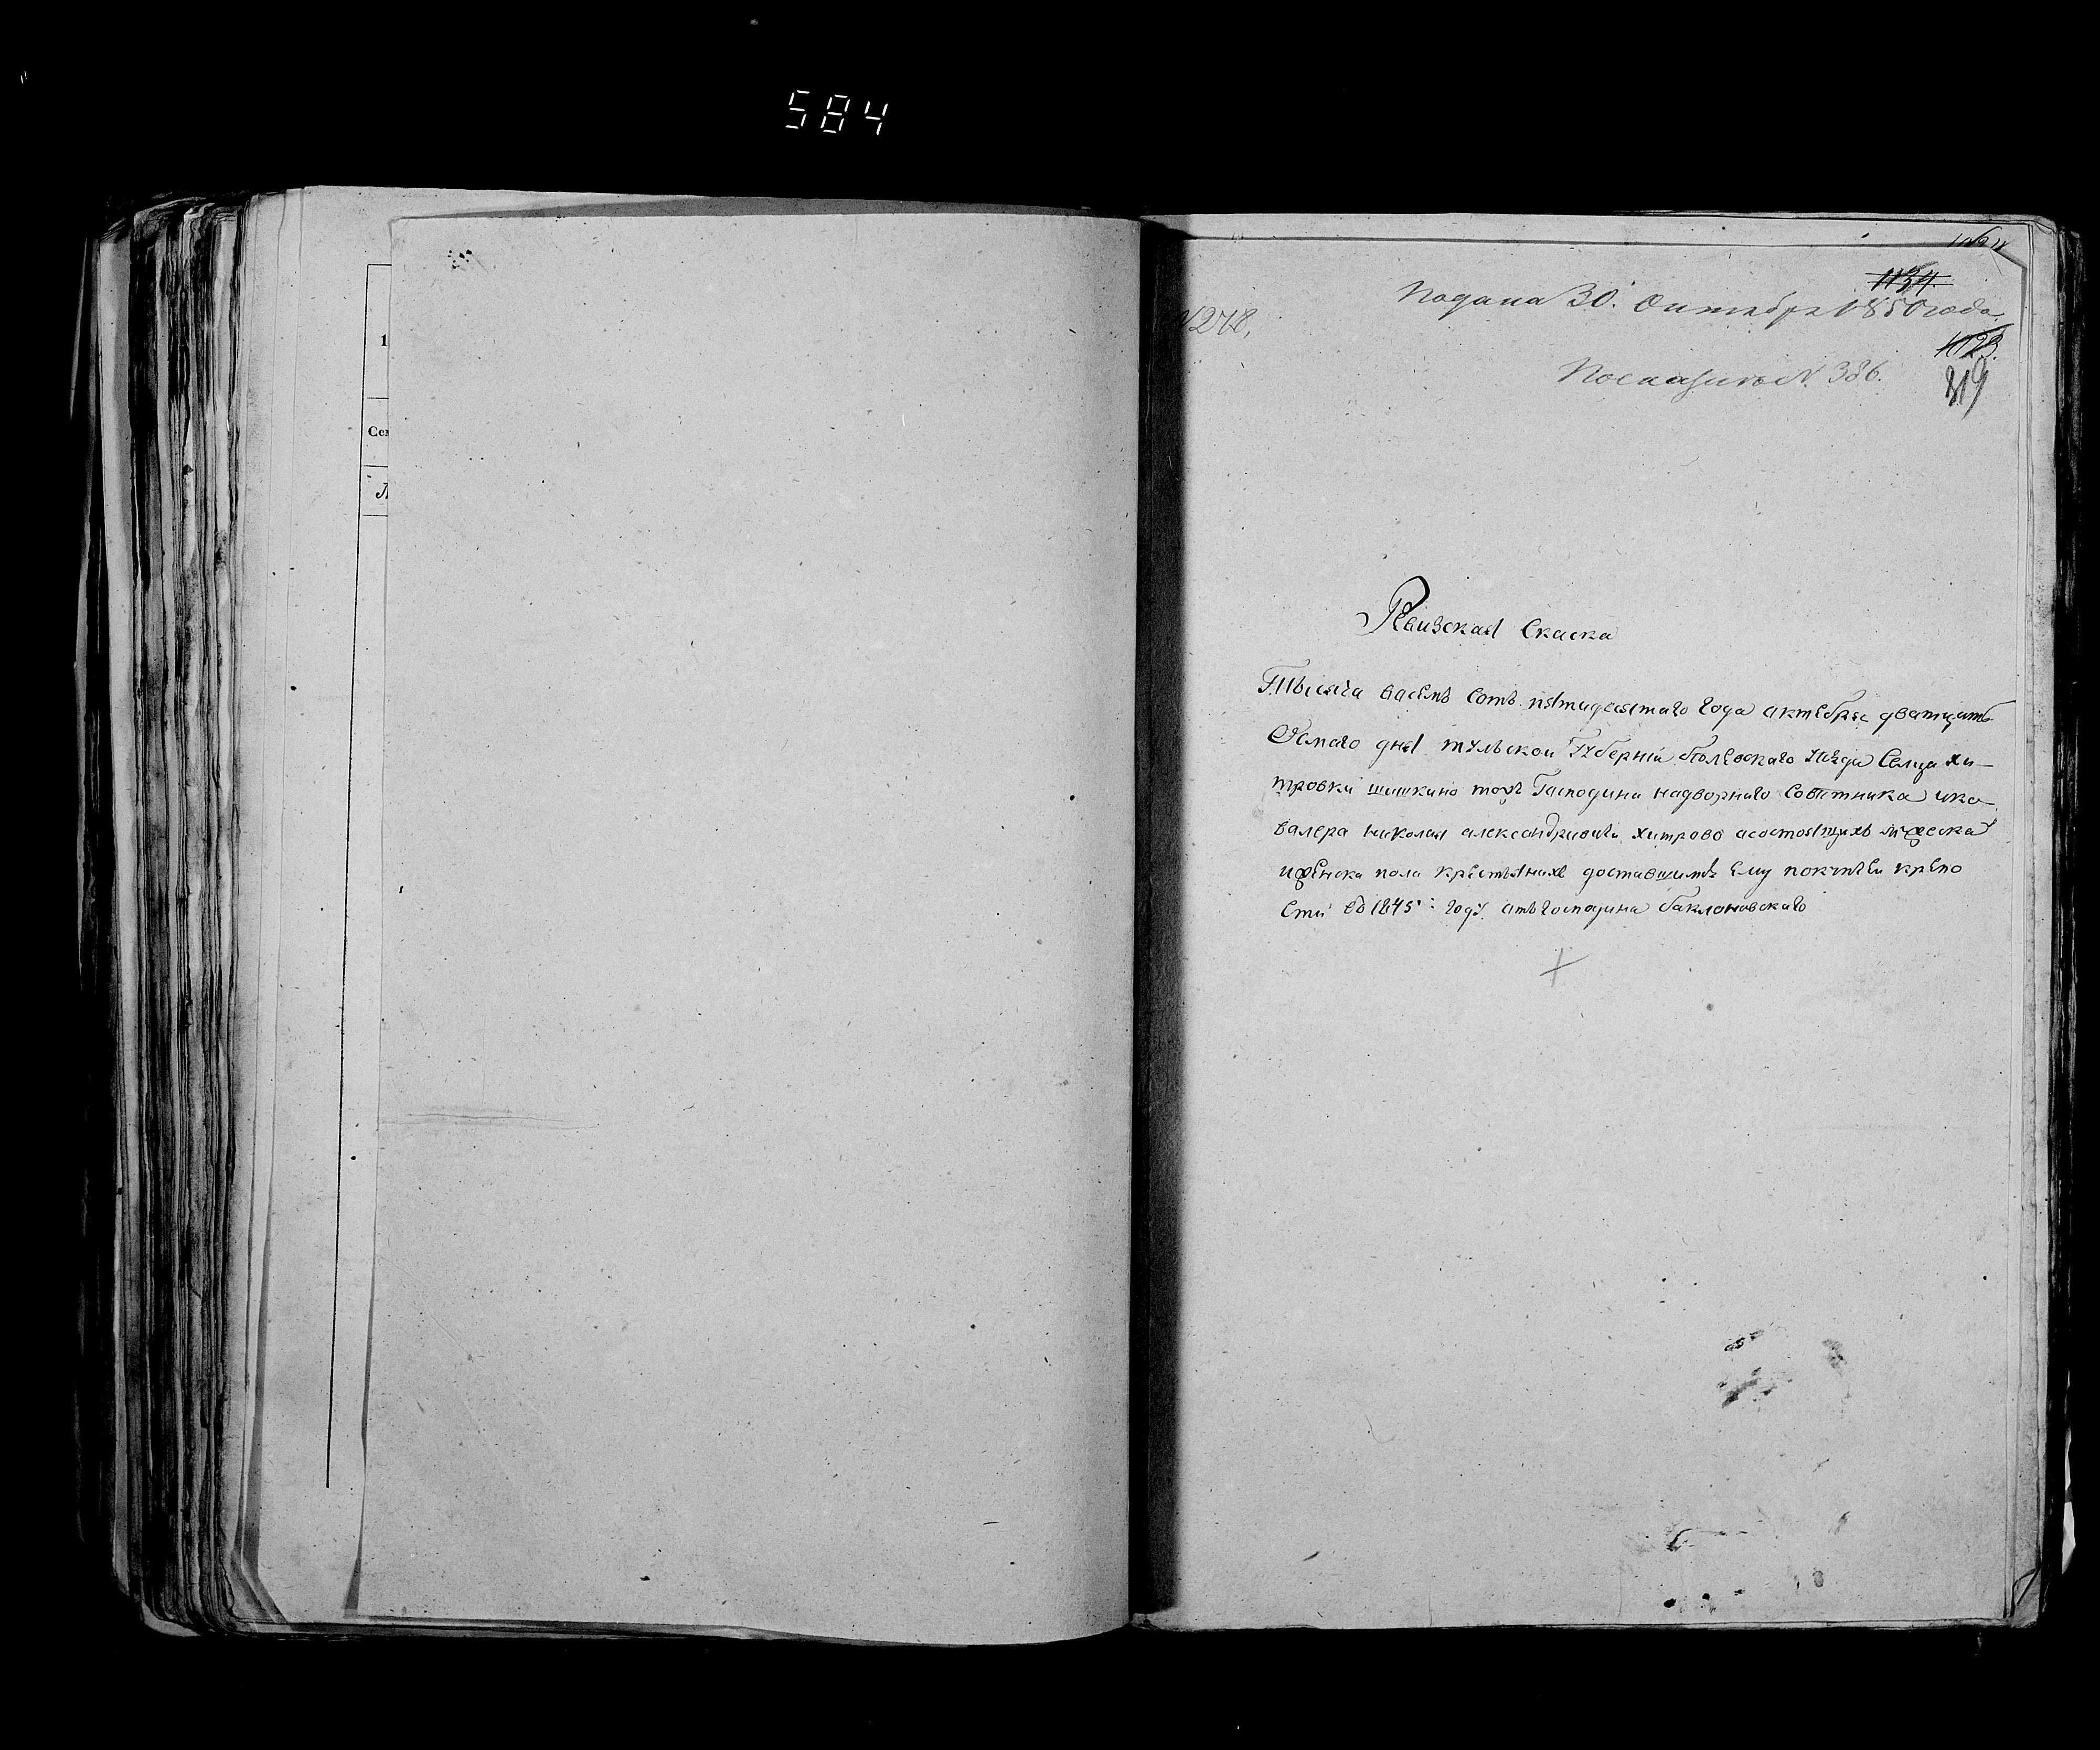 584
1134.
Подана 30. Октября 1850 года.
№ 278.
1123.
По описи № 386.
319
Ревизская Скаска
Тысяча васемь сотъ пятидесятаго года актебря дватцать
Осмаго дня тульской Губерніи Белевскаго уѣзда Селца хи-
тровки шишкино тожъ Гасподина надворнаго Советника ика-
валера николая александравича хитрово асостоящихъ мужеска
иженска пола крестьянахъ доставшимъ ему покупчей крепо
сти въ 1845 году атъ господина баклановскаго
1
Сем
Л